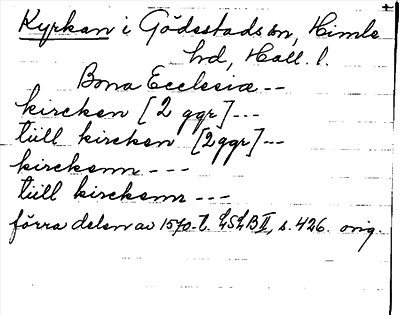 Kyrkan i Gödestads sn, Himle
hd, Hall. l.
Bona Ecclesiæ --
kircken [2 ggr] ---
tiill kircken [2ggr] ---
kirckenn ---
tiill kirckenn ---
förra delen av 1570-t. LSLB II, s. 426. orig.